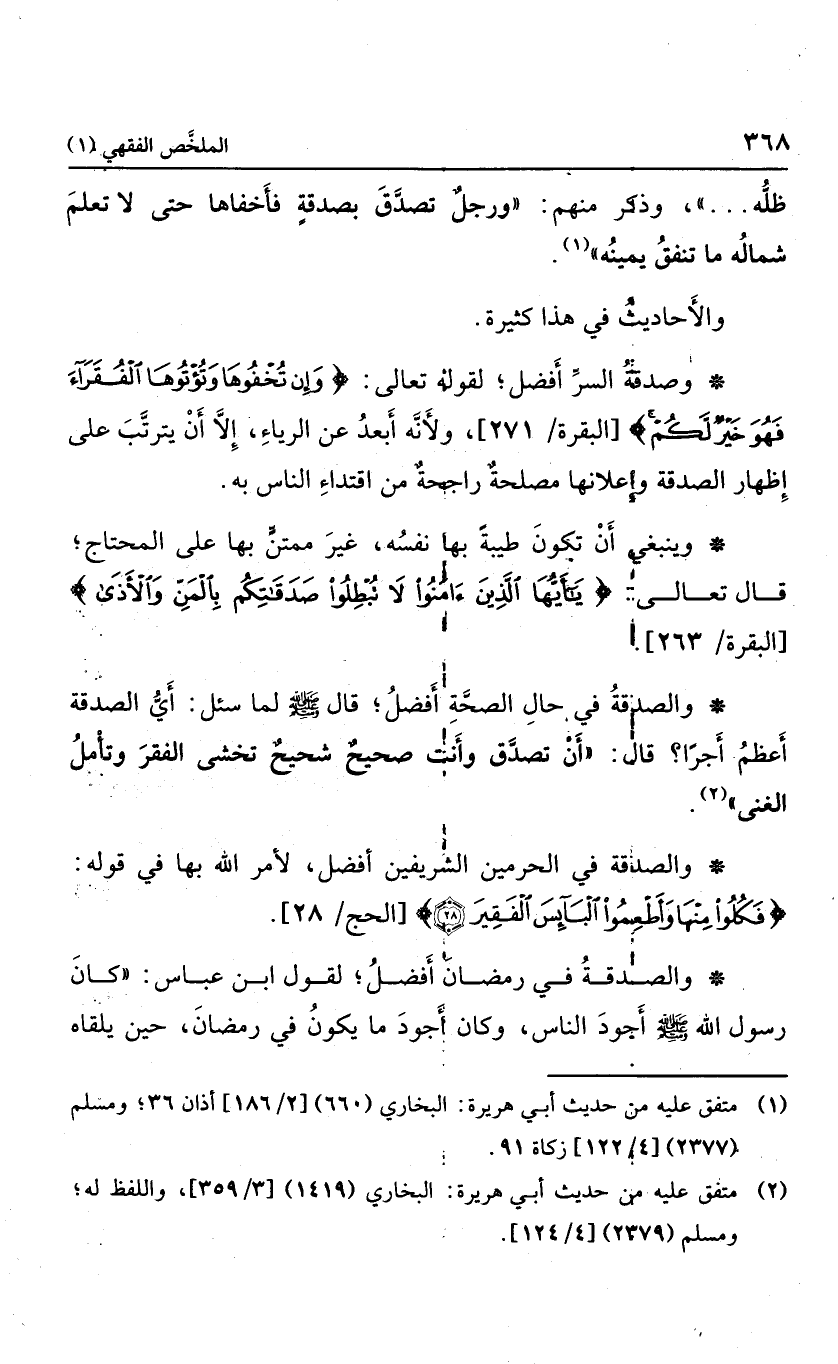 ٣٦٨ الملخَّص الفقهي (١)
ظلُّه...»، وذكر منهم: «ورجلٌ تصدَّقَ بصدقةٍ فأَخفاها حتى لا تعلمَ
شمالُه ما تنفقُ يمينُه»(١).
والأَحاديثُ في هذا كثيرة.
* وصدقةُ السرِّ أَفضل؛ لقوله تعالى: ﴿وَإِن تُخْفُوهَا وَتُؤْتُوهَا ٱلْفُقَرَآءَ
فَهُوَ خَيْرٌ لَّكُمْ ۚ﴾ [البقرة/ ٢٧١]، ولأَنَّه أَبعدُ عن الرياءِ، إِلَّا أَنْ يترتَّبَ على
إِظهار الصدقة وإِعلانها مصلحةٌ راجحةٌ من اقتداءِ الناس به.
* وينبغي أَنْ تكونَ طيبةً بها نفسُه، غيرَ ممتنٍّ بها على المحتاج؛
قال تعالى: ﴿يَٰٓأَيُّهَا ٱلَّذِينَ ءَامَنُوا۟ لَا تُبْطِلُوا۟ صَدَقَٰتِكُم بِٱلْمَنِّ وَٱلْأَذَىٰ﴾
[البقرة/ ٢٦٣].
* والصدقةُ في حالِ الصحَّةِ أَفضلُ؛ قال ﷺ لما سئل: أَيُّ الصدقة
أَعظمُ أَجرًا؟ قال: «أَنْ تصدَّق وأَنت صحيحٌ شحيحٌ تخشى الفقرَ وتأْملُ
الغنى»(٢).
* والصدقة في الحرمين الشريفين أفضل، لأمر الله بها في قوله:
﴿فَكُلُوا۟ مِنْهَا وَأَطْعِمُوا۟ ٱلْبَآئِسَ ٱلْفَقِيرَ ٢٨﴾ [الحج/ ٢٨].
* والصدقةُ في رمضانَ أَفضلُ؛ لقول ابن عباس: «كانَ
رسول الله ﷺ أَجودَ الناس، وكان أَجودَ ما يكونُ في رمضانَ، حين يلقاه
(١) متفق عليه من حديث أبي هريرة: البخاري (٦٦٠) [٢/ ١٨٦] أذان ٣٦؛ ومسلم
(٢٣٧٧) [٤/ ١٢٢] زكاة ٩١.
(٢) متفق عليه من حديث أبي هريرة: البخاري (١٤١٩) [٣/ ٣٥٩]، واللفظ له؛
ومسلم (٢٣٧٩) [٤/ ١٢٤].